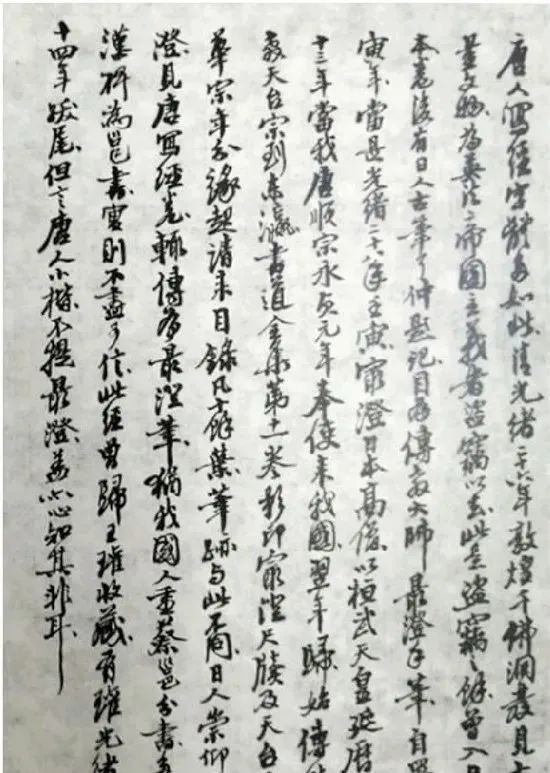 唐人写经字体多如此清光绪二十六年敦煌千佛洞发见古
为英法帝国主义者盗窃以去此是盗窃之余曾入日
本卷后有日人古笔了仲题记目为传教大师最澄手笔自署
寅年当是光绪二十八年壬寅最澄日本高僧以桓武天皇延历
十三年当我唐顺宗永贞元年奉使来我国翌年归始传
教天台宗到东瀛书道全集第十一卷影印最澄尺牍及天台
华宗年分缘起请来目录凡十余叶笔迹与此不同日人崇仰
澄见唐写经卷辄传为最澄笔犹我国人重蔡邕分书多
汉碑为邕书实则不尽可信此经曾归王瓘收藏有瓘光绪
十四年跋尾但言唐人小楷不提最澄盖心知其非耳